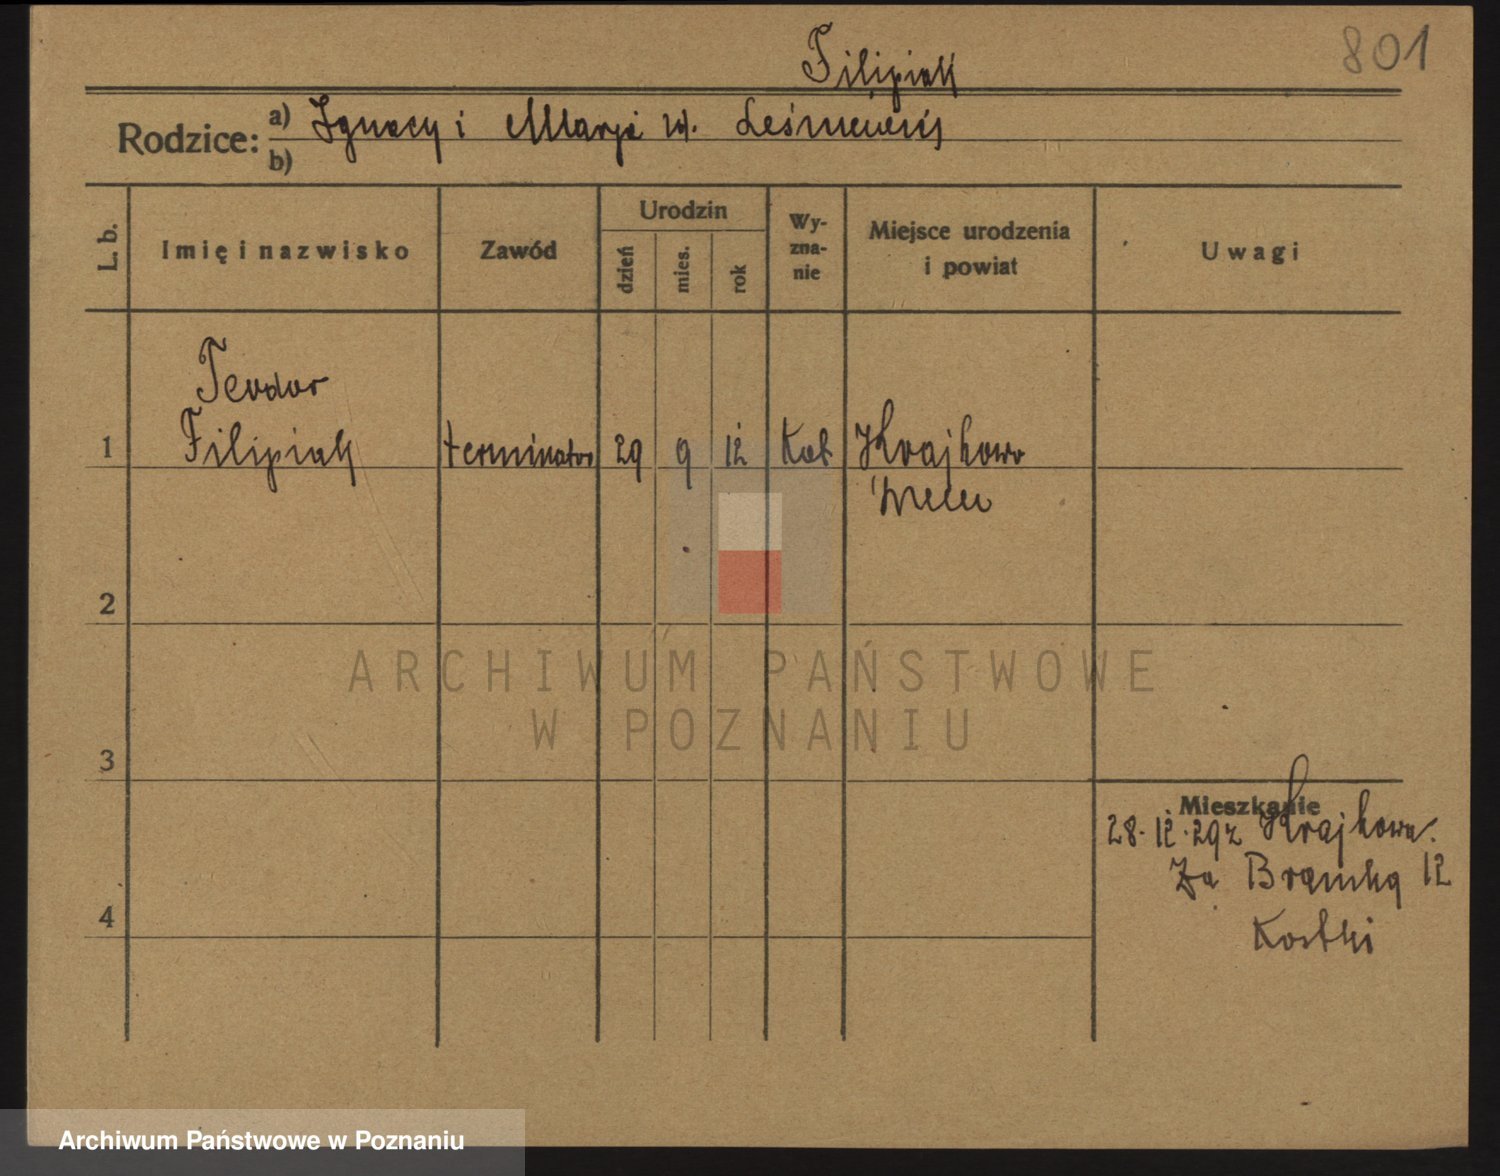 801
Filipiak
Rodzice: a) Ignacy i Marja
b)
L. b.
Imię i nazwisko
Zawód
Urodzin
dzień
mies.
rok
Wy-
zna-
nie
Miejsce urodzenia
i powiat
Uwagi
Teodor
1 Filipiak terminator 29 9 12 Kat Krajkowo
2
ARCHIWUM PAŃSTWOWE
W POZNANIU
3
Mieszkanie
28.12.29 z Krajkowa.
Za Bramką 12
4
Kostki
Archiwum Państwowe w Poznaniu